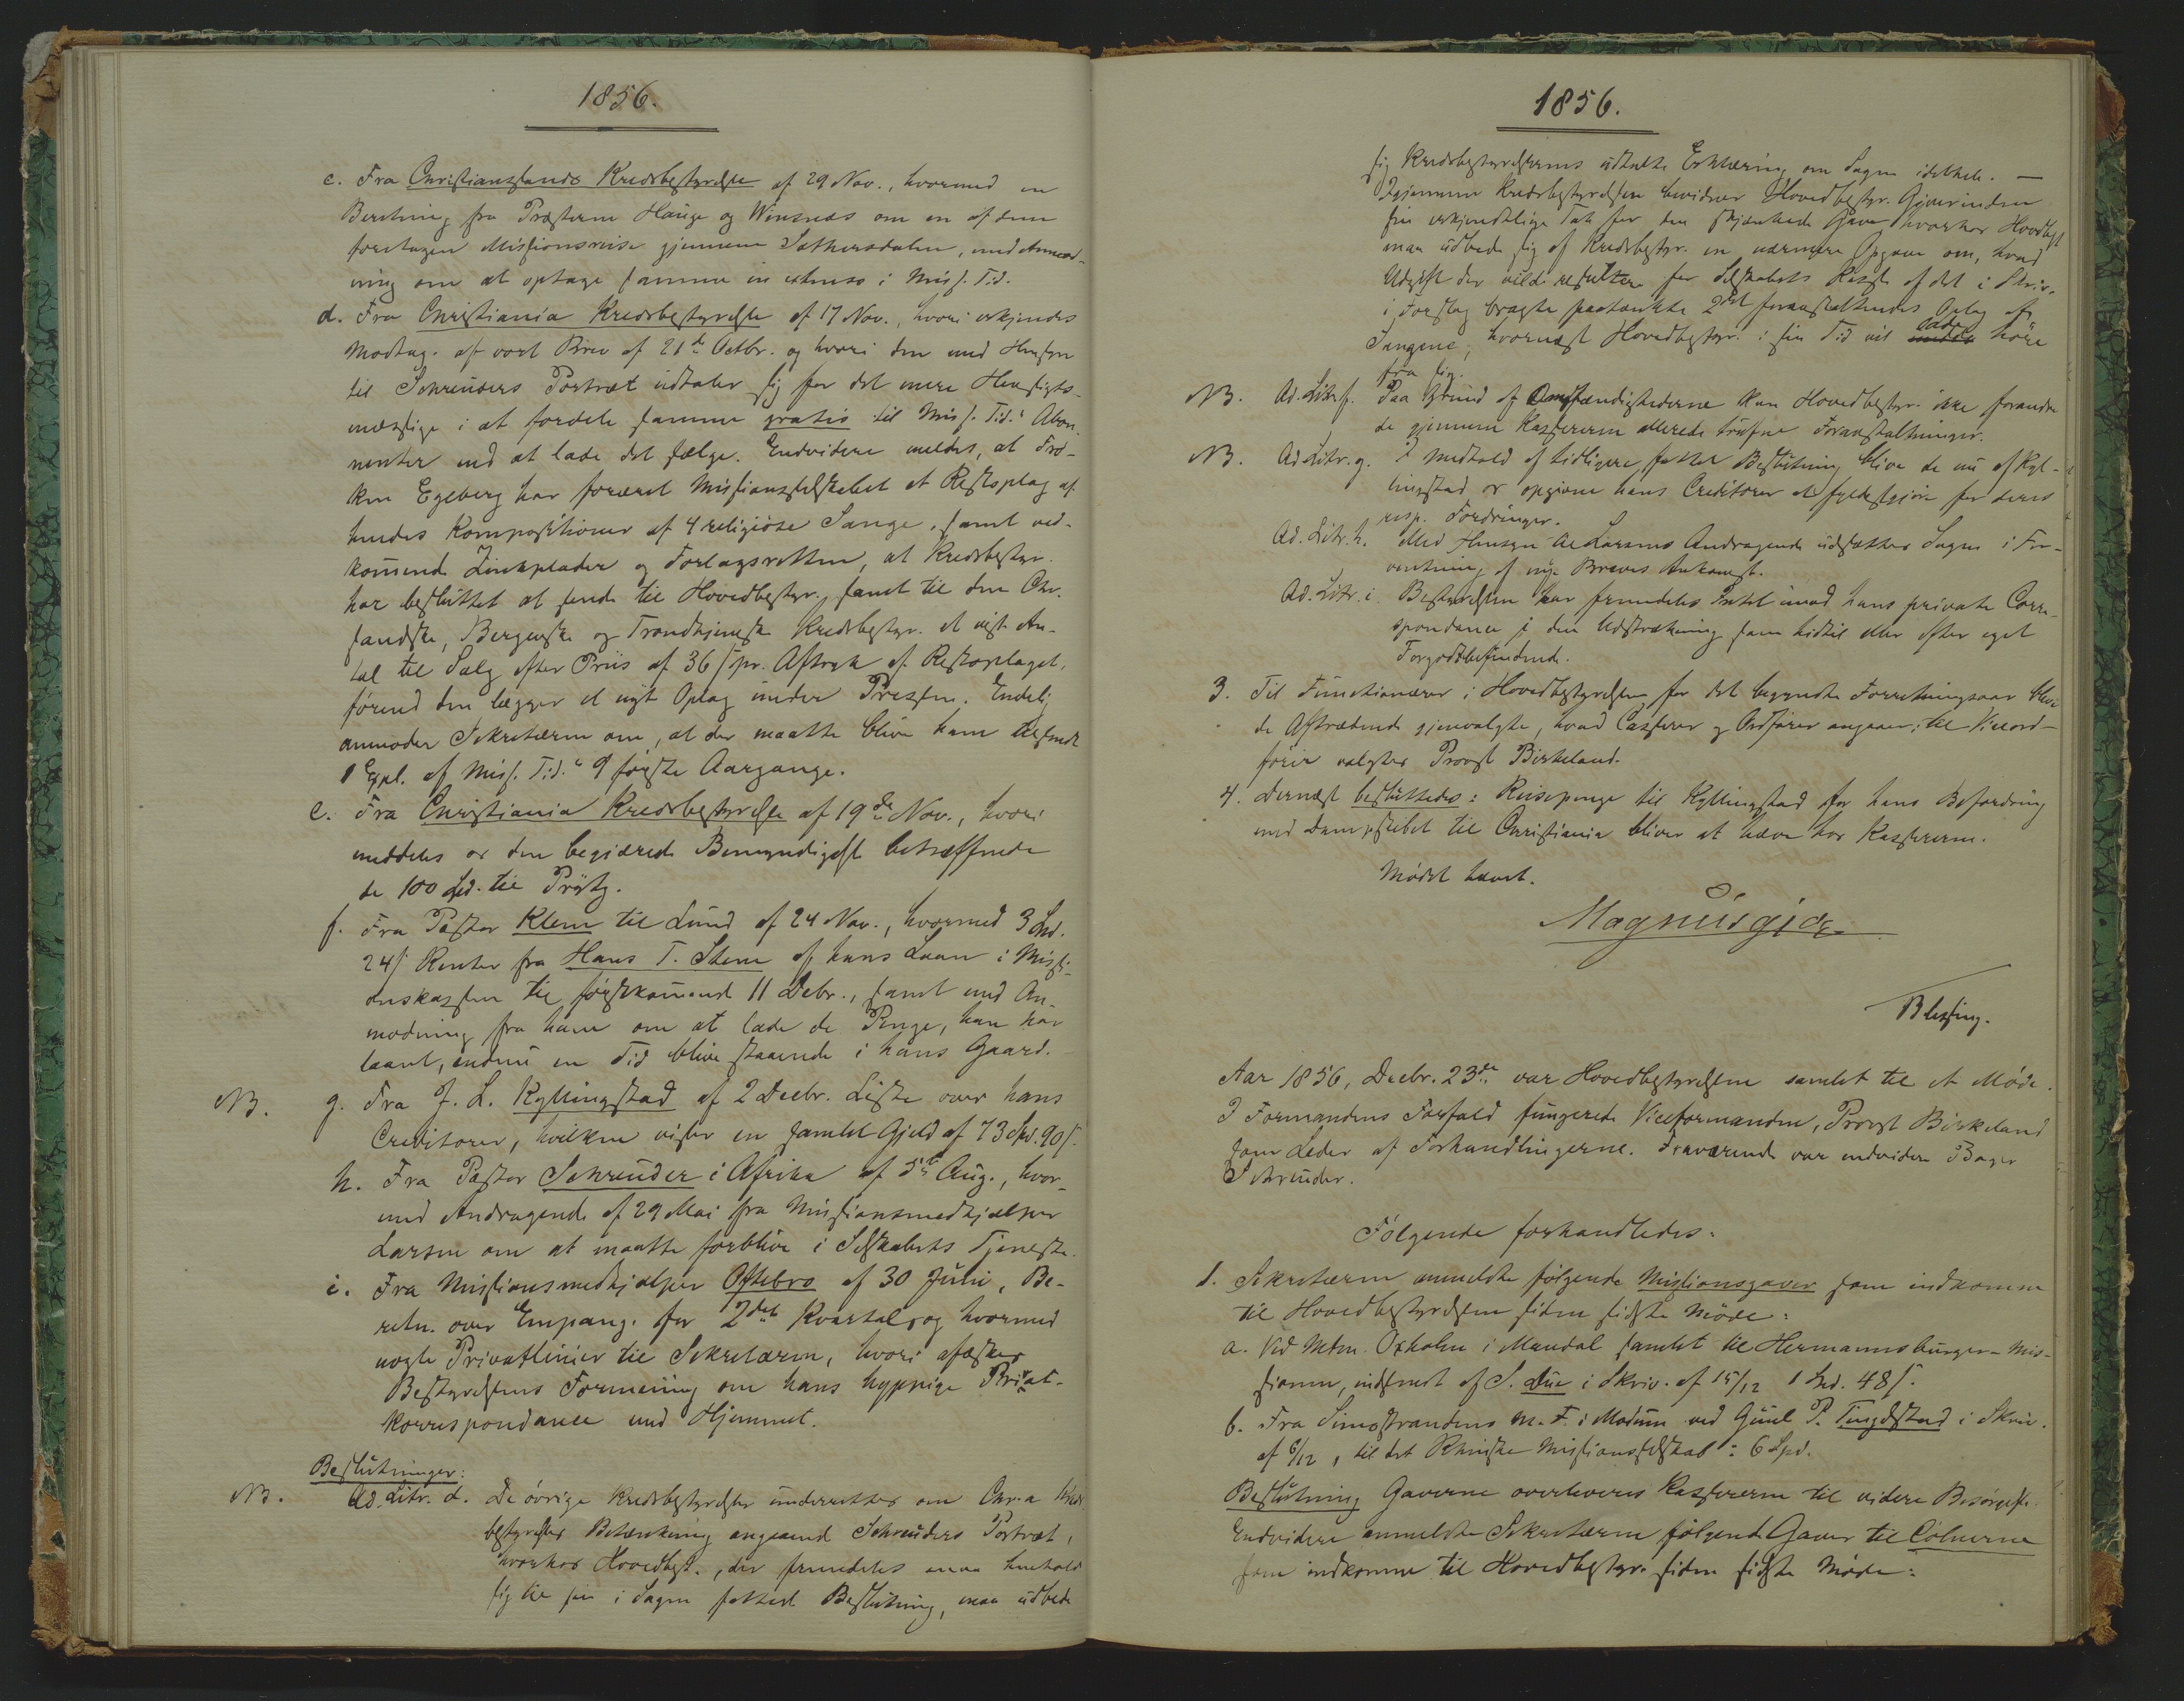 1856.
c. Fra Christianssands Kredsbestyrelse af 29 Nov., hvormed en
Beretning fra Præsterne Hauge og Winsnes om en af dem
foretagen Missionsreise gjennem Sætersdalen, med Anmod-
ning om at optage samme in extenso i Miss. Tid.
d. Fra Christiania Kredsbestyrelse af 17 Nov., hvori erkjendes
Modtag. af vort Brev af 21de Octbr. og hvori den med Hensyn
til Schreuders Portræt udtaler sig for det mere Hensigts-
mæssige i at fordele samme gratis til Miss. Tid.s Abon-
nenter end at lade det sælge. Endvidere meldes, at Frø-
ken Egeberg har foræret Missionsselskabet et Restoplag af
hendes Kompositioner af 4 religiöse Sange, samt ved-
kommende Zinkplader og Forlagsretten, at Kredsbestyr.
har besluttet at sende til Hovedbestyr., samt til den Chr.
sandske, Bergenske og Trondhjemske Kredsbestyr. et vist An-
tal til Salg efter Priis af 36 s pr. Aftryk af Restoplaget,
förend den lægger et nyt Oplag under Pressen. Endelig
anmoder Sekretæren om, at der maatte blive ham tilsendt
1 Expl. af Miss. Tid.s 9 første Aargange.
e. Fra Christiania Kredsbestyrelse af 19de Nov., hvori
meddeles os den begjærede Bemyndigelse betræffende
de 100 Spd. til Prøtz.
f. Fra Pastor Klem til Lund af 24 Nov., hvormed 3 Spd.
24 s Renter fra Hans T. Stene af hans Laan i Missi-
onskassen til førstkommende 11 Debr., samt med An-
modning fra ham om at lade de Penge, han har
laant, endnu en Tid blive staaende i hans Gaard.
NB. g. Fra J. L. Kyllingstad af 2 Decbr. Liste over hans
Creditorer, hvilken viser en samlet Gjeld af 73 Spd. 90 s.
h. Fra Pastor Schreuder i Afrika af 5te Aug., hvor-
med Andragende af 29 Mai fra Missionsmedhjælper
Larsen om at maatte forblive i Selskabets Tjeneste.
i. Fra Missionsmedhjælper Oftebro af 30 Juli, Be-
retn. over Empang. for 2det Kvartal, og hvormed
nogle Privatlinier til Sekretæren, hvori afæskes
Bestyrelsens Formening om hans hyppige Privat-
korrespondance med Hjemmet.
Beslutninger:
NB. Ad. Litr. d. De övrige Kredsbestyrelser underrettes om Chr.a Kreds-
bestyrelses Betænkning angaaende Schreuders Portræt,
hvorhos Hovedbest., der fremdeles maa henholde
sig til sin i Sagen fattede Beslutning, maa udbede
1856.
sig Kredsbestyrelsernes udtalte Erklæring om Sagen idethele. —
Igjennem Kredsbestyrelsen bevidner Hovedbestyr. Giverinden
sin erkjendtlige Tak for den skjænkede Gave hvorhos Hovedbest
maa udbede sig af Kredsbestyr. en nærmere Opgave om, hvad
Udgift der vilde resultere for Selskabets Kasse af det i Skriv.
i Forslag bragte paatænkte 2det foranstaltendes Oplag af
Sangene, hvornæst Hovedbestyr. i sin Tid vil lade höre
fra sig.
NB. Ad. Litr. f. Paa Grund af Omstændighederne kan Hovedbestyr. ikke forandre
de gjennem Kassereren allerede trufne Foranstaltninger.
NB. Ad Litr. g. I Medhold af tidligere fattet Beslutning blive de nu af Kyl-
lingstad os opgivne hans Creditorer at fyldestgjöre for deres
resp. Fordringer.
Ad. Litr. h. Med Hensyn til Larsens Andragende udsættes Sagen i For-
ventning af nye Breves Ankomst.
Ad. Litr. i. Bestyrelsen har fremdeles Intet imod hans private Corre-
spondance i den Udstrækning som hidtil eller efter eget
Forgodtbefindende.
3. Til Functionærer i Hovedbestyrelsen for det begyndte Forretningsaar bleve
de Aftrædende gjenvalgte, hvad Casserer og Ordfører angaaer; til Viceord-
förer valgtes Provst Birkeland.
4. Dernæst besluttedes: Reisepenge til Kyllingstad for hans Befordring
med Dampskibet til Christiania bliver at hæve hos Kassereren.
Mødet hævet.
Magnus gjør
Blessing.
Aar 1856, Decbr. 23de var Hovedbestyrelsen samlet til et Möde.
I Formandens Forfald fungerede Viceformanden, Provst Birkeland
som Leder af Forhandlingerne. Fraværende var endvidere Bager
Schreuder.
Fölgende forhandledes:
1. Sekretæren anmeldte fölgende Missionsgaver som indkomne
til Hovedbestyrelsen siden sidste Möde:
a. Ved Mdm. Oxholm i Mandal samlet til Hermannsburger-Mis-
sionen, indsendt af S. Due i Skriv. af 15/12 1 Spd. 48 s.
b. Fra Simostrandens M. F. i Modum ved Gunl P. Tingelstad i Skriv.
af 6/12, til det Rhinske Missionsselskab: 6 Spd.
Beslutning Gaverne overleveres Kassereren til videre Besörgelse.
Endvidere anmeldte Sekretæren fölgende Gaver til Cölnerne
som indkomne til Hovedbestyr. siden sidste Möde: